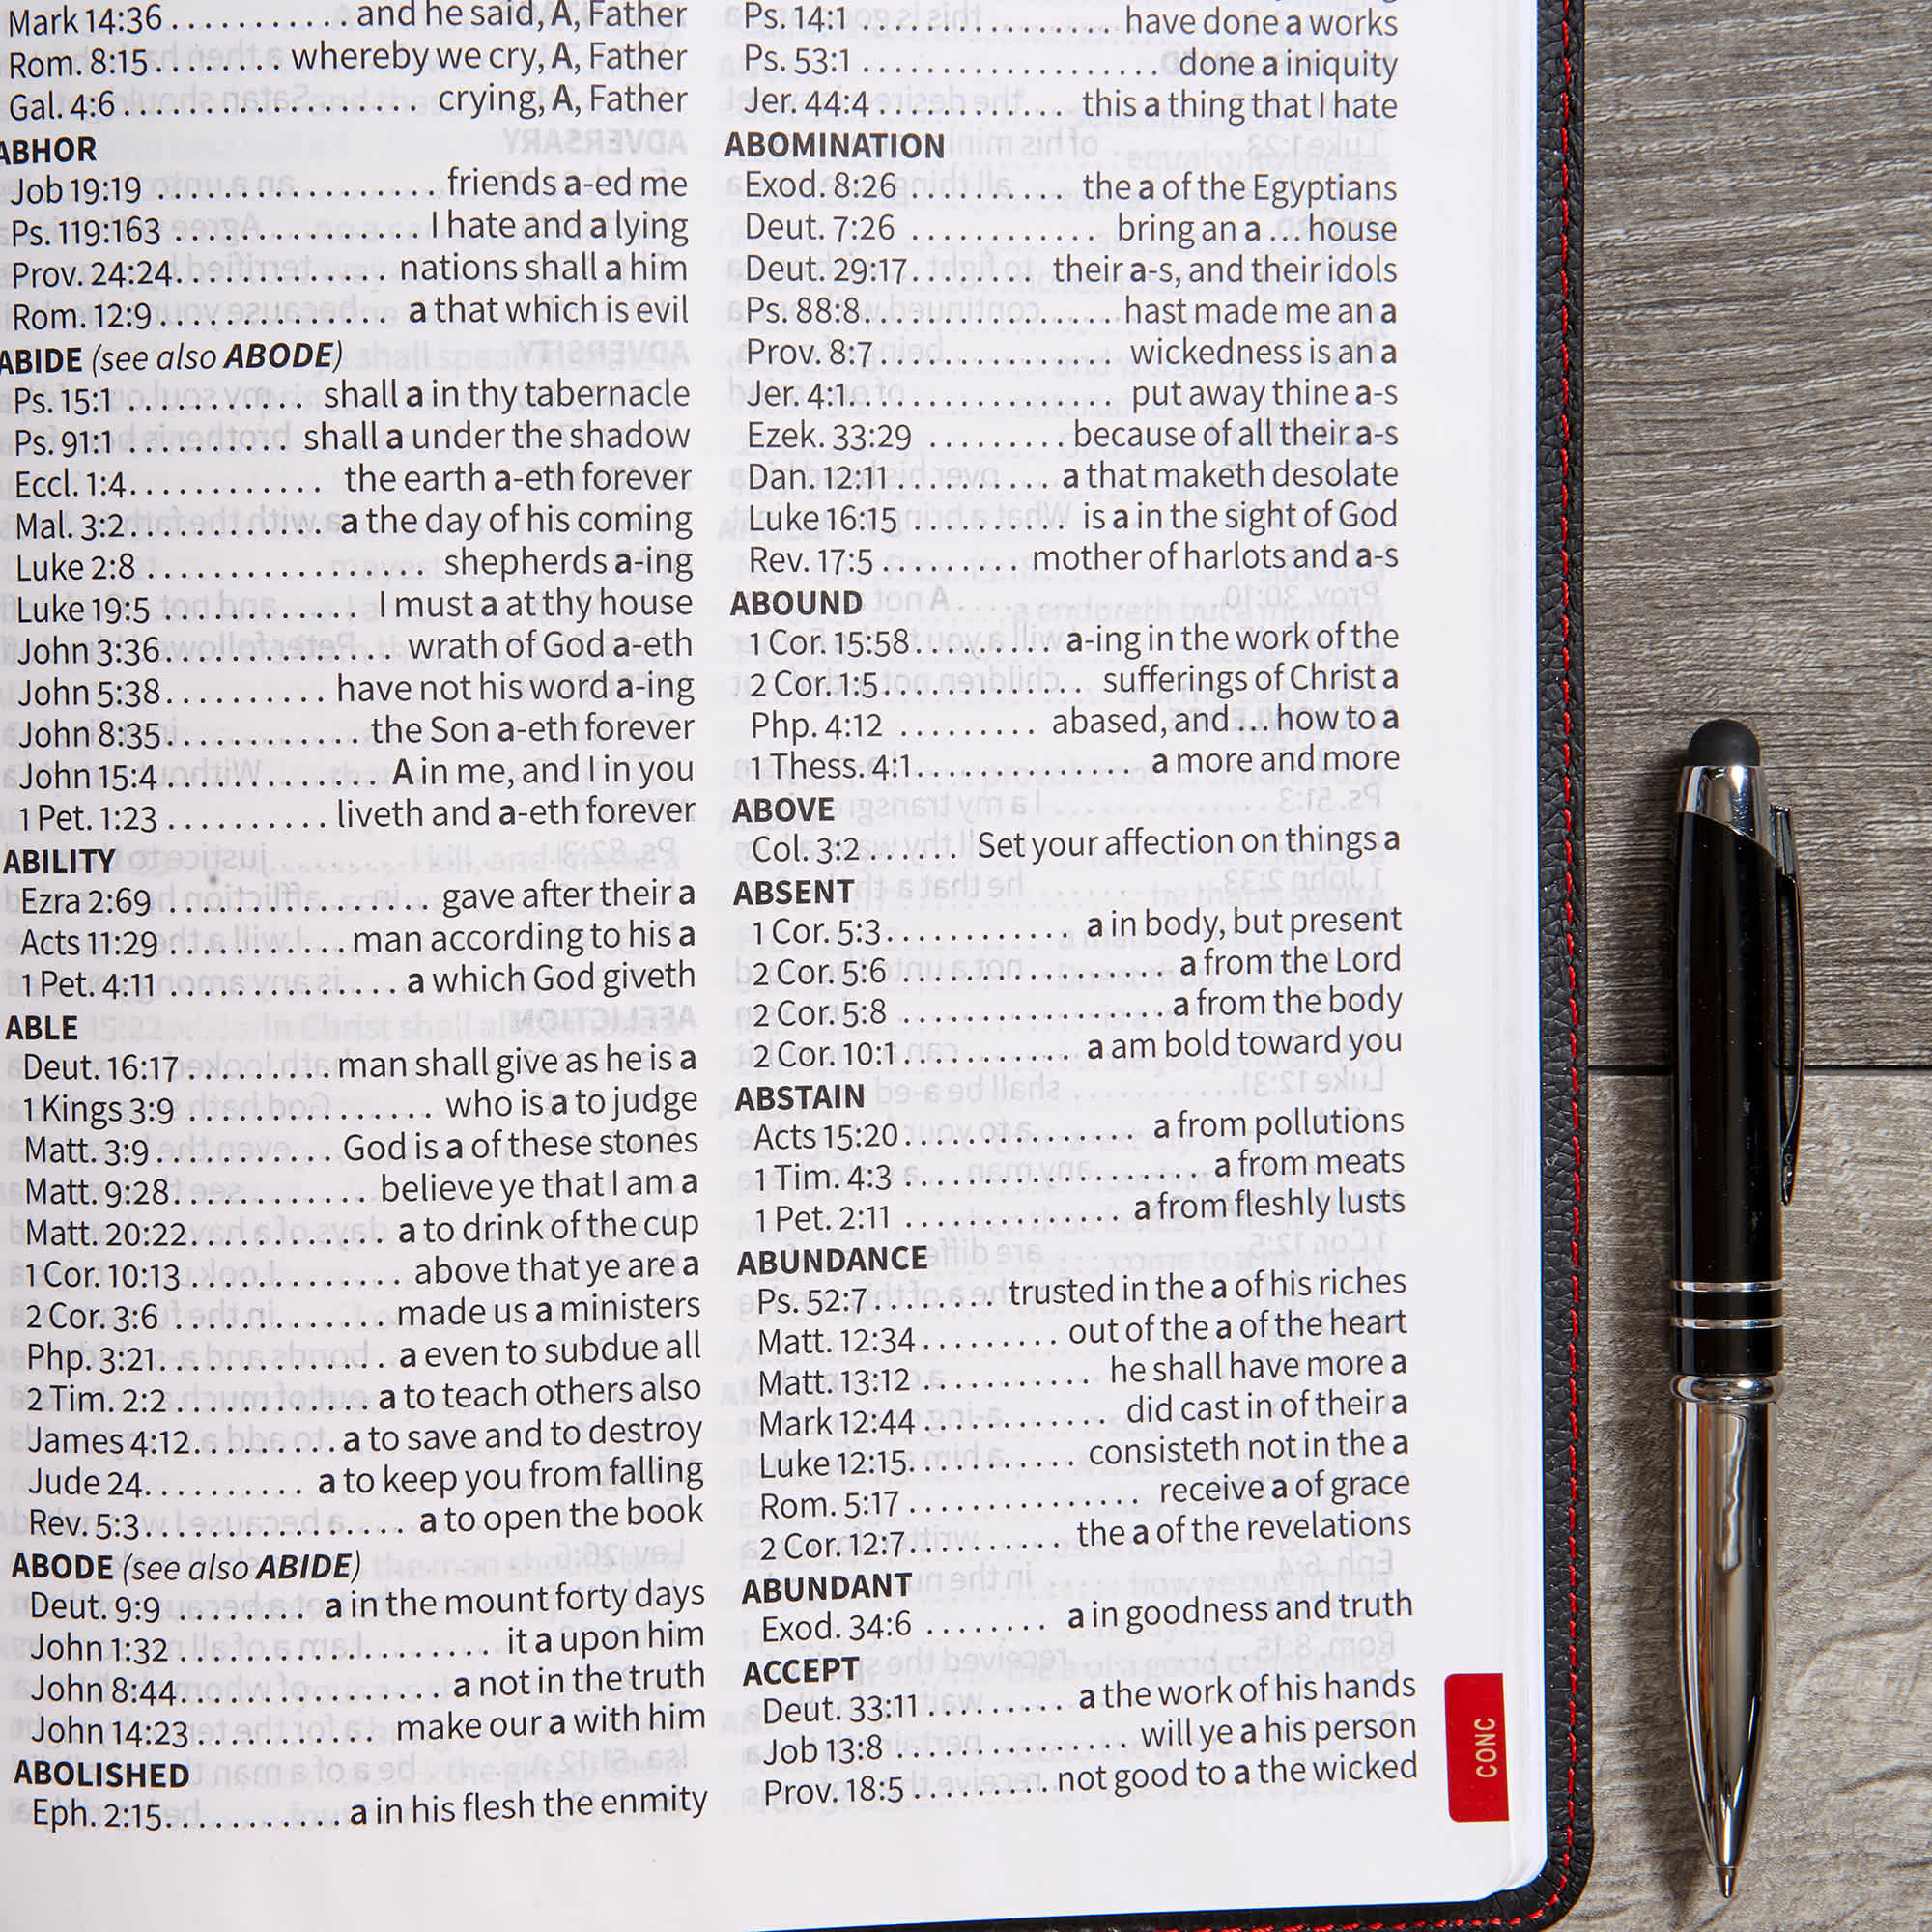 Mark 14:36 . . . . . . . . . . . and he said, A, Father
Rom. 8:15 . . . . . . . . whereby we cry, A, Father
Gal. 4:6 . . . . . . . . . . . . . . . . . crying, A, Father
ABHOR
Job 19:19 . . . . . . . . . . . . . . . friends a-ed me
Ps. 119:163 . . . . . . . . . . . . . I hate and a lying
Prov. 24:24 . . . . . . . . . . . . nations shall a him
Rom. 12:9 . . . . . . . . . . . . . a that which is evil
ABIDE (see also ABODE)
Ps. 15:1 . . . . . . . . . . . shall a in thy tabernacle
Ps. 91:1 . . . . . . . . . . shall a under the shadow
Eccl. 1:4 . . . . . . . . . . . . the earth a-eth forever
Mal. 3:2 . . . . . . . . . . . . . a the day of his coming
Luke 2:8 . . . . . . . . . . . . . . . . . shepherds a-ing
Luke 19:5 . . . . . . . . . . . . I must a at thy house
John 3:36 . . . . . . . . . . . . . . wrath of God a-eth
John 5:38 . . . . . . . . . . have not his word a-ing
John 8:35 . . . . . . . . . . . . the Son a-eth forever
John 15:4 . . . . . . . . . . . . . A in me, and I in you
1 Pet. 1:23 . . . . . . . . . . liveth and a-eth forever
ABILITY
Ezra 2:69 . . . . . . . . . . . . . . . . gave after their a
Acts 11:29 . . . . . . . . . . . . man according to his a
1 Pet. 4:11 . . . . . . . . . . . . . . . a which God giveth
ABLE
Deut. 16:17 . . . . . . . . . man shall give as he is a
1 Kings 3:9 . . . . . . . . . . . . . . . who is a to judge
Matt. 3:9 . . . . . . . . . . . God is a of these stones
Matt. 9:28 . . . . . . . . . . . . believe ye that I am a
Matt. 20:22 . . . . . . . . . . . . a to drink of the cup
1 Cor. 10:13 . . . . . . . . . . . . above that ye are a
2 Cor. 3:6 . . . . . . . . . . . . . made us a ministers
Php. 3:21 . . . . . . . . . . . . . . a even to subdue all
2 Tim. 2:2 . . . . . . . . . . . . a to teach others also
James 4:12 . . . . . . . . . a to save and to destroy
Jude 24 . . . . . . . . . . a to keep you from falling
Rev. 5:3 . . . . . . . . . . . . . . . . a to open the book
ABODE (see also ABIDE)
Deut. 9:9 . . . . . . . . a in the mount forty days
John 1:32 . . . . . . . . . . . . . . . . . . . . it a upon him
John 8:44 . . . . . . . . . . . . . . . . a not in the truth
John 14:23 . . . . . . . . . . . . make our a with him
ABOLISHED
Eph. 2:15 . . . . . . . . . . . a in his flesh the enmity
Ps. 14:1 . . . . . . . . . . . . . . . . . have done a works
Ps. 53:1 . . . . . . . . . . . . . . . . . . . done a iniquity
Jer. 44:4 . . . . . . . . . . . . . this a thing that I hate
ABOMINATION
Exod. 8:26 . . . . . . . . . . . the a of the Egyptians
Deut. 7:26 . . . . . . . . . . . . bring an a ... house
Deut. 29:17 . . . . . . . . . their a-s, and their idols
Ps. 88:8 . . . . . . . . . . . . . . . . . hast made me an a
Prov. 8:7 . . . . . . . . . . . . . . . . wickedness is an a
Jer. 4:1 . . . . . . . . . . . . . . . . . put away thine a-s
Ezek. 33:29 . . . . . . . . . because of all their a-s
Dan. 12:11 . . . . . . . . . . . a that maketh desolate
Luke 16:15 . . . . . . . . . . . is a in the sight of God
Rev. 17:5 . . . . . . . . . mother of harlots and a-s
ABOUND
1 Cor. 15:58 . . . . . . . . . a-ing in the work of the
2 Cor. 1:5 . . . . . . . . . . . . . sufferings of Christ a
Php. 4:12 . . . . . . . . . abased, and ... how to a
1 Thess. 4:1 . . . . . . . . . . . . . . a more and more
ABOVE
Col. 3:2 . . . . . . Set your affection on things a
ABSENT
1 Cor. 5:3 . . . . . . . . . . . . a in body, but present
2 Cor. 5:6 . . . . . . . . . . . . . . . . . . a from the Lord
2 Cor. 5:8 . . . . . . . . . . . . . . . . . a from the body
2 Cor. 10:1 . . . . . . . . . . . . a am bold toward you
ABSTAIN
Acts 15:20 . . . . . . . . . . . . . . . a from pollutions
1 Tim. 4:3 . . . . . . . . . . . . . . . . . . . a from meats
1 Pet. 2:11 . . . . . . . . . . . . . . a from fleshly lusts
ABUNDANCE
Ps. 52:7 . . . . . . . . trusted in the a of his riches
Matt. 12:34 . . . . . . . . . out of the a of the heart
Matt. 13:12 . . . . . . . . . . . he shall have more a
Mark 12:44 . . . . . . . . . . . . did cast in of their a
Luke 12:15 . . . . . . . . . . . consisteth not in the a
Rom. 5:17 . . . . . . . . . . . . . . . . receive a of grace
2 Cor. 12:7 . . . . . . . . . . the a of the revelations
ABUNDANT
Exod. 34:6 . . . . . . . . a in goodness and truth
ACCEPT
Deut. 33:11 . . . . . . . . . a the work of his hands
Job 13:8 . . . . . . . . . . . . . . . will ye a his person
Prov. 18:5 . . . . . . . . . not good to a the wicked
CONC